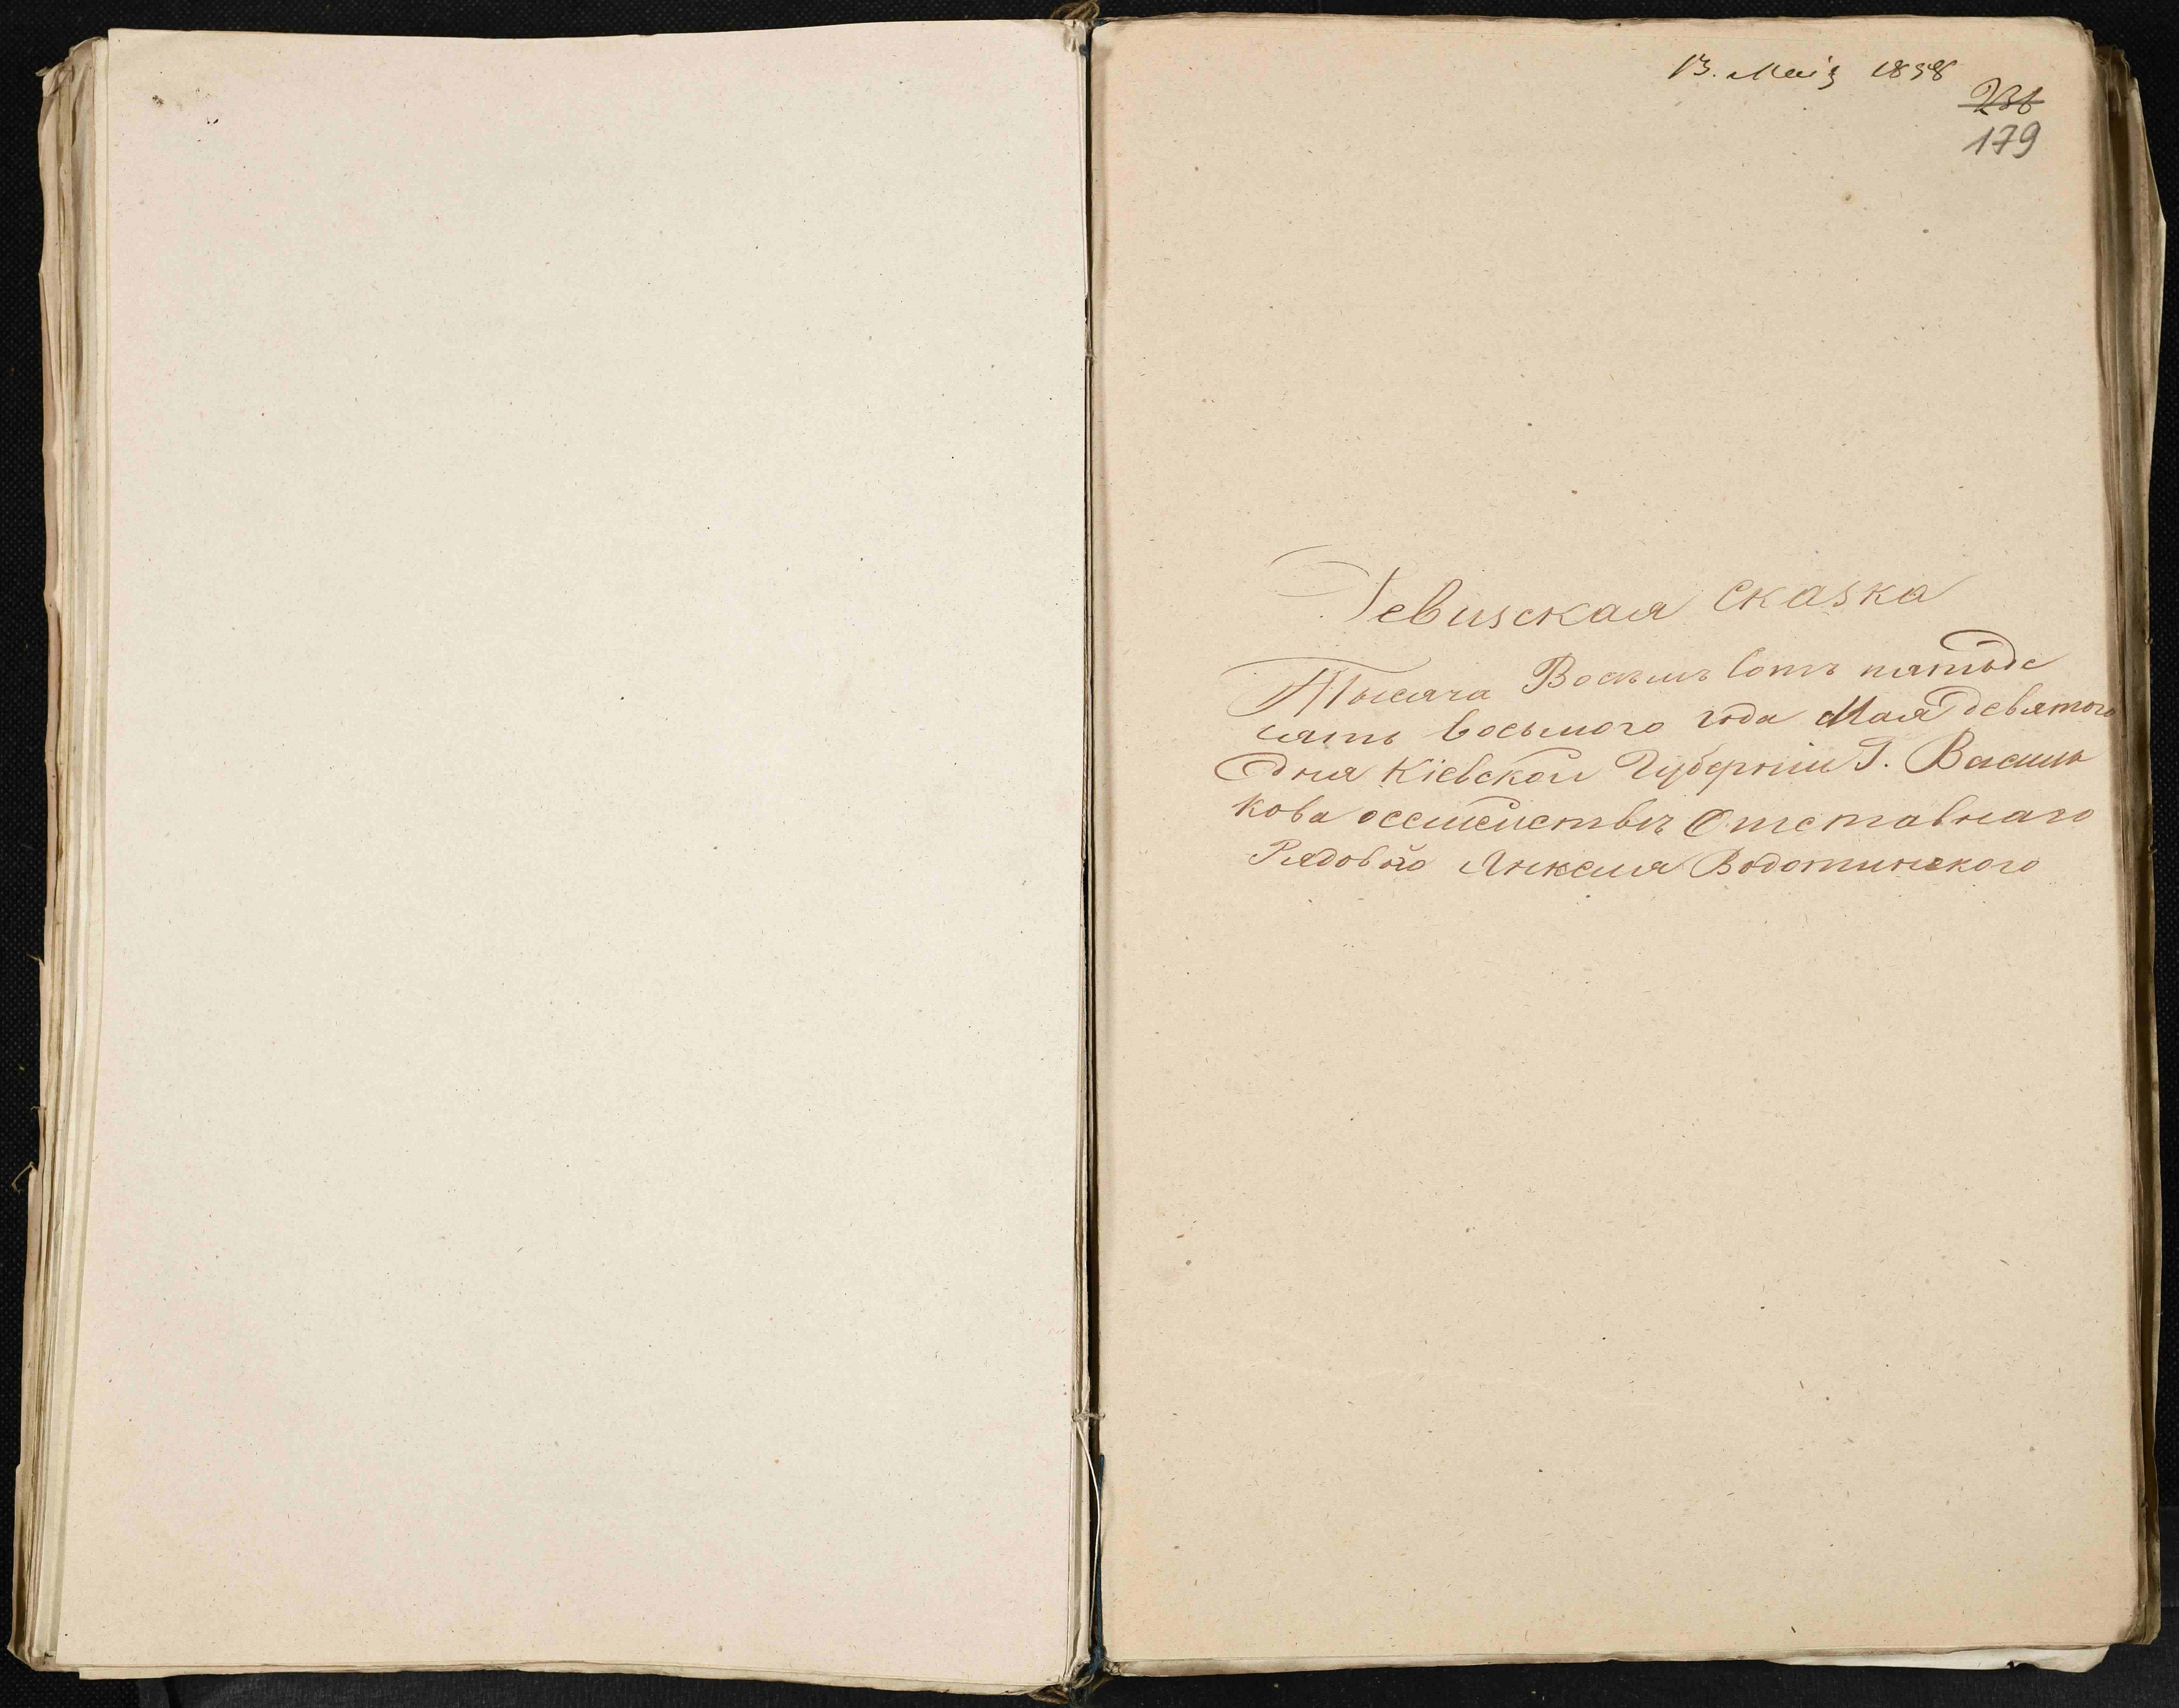 13. Маія 1858
231
179
Ревизская сказка
Тысяча Восемь сотъ пятьде
сять восьмого года Мая девятого
дня Кіевской Губерніи Г. Василь
кова осемействѣ Отставнаго
Рядового Янкеля Водотинского